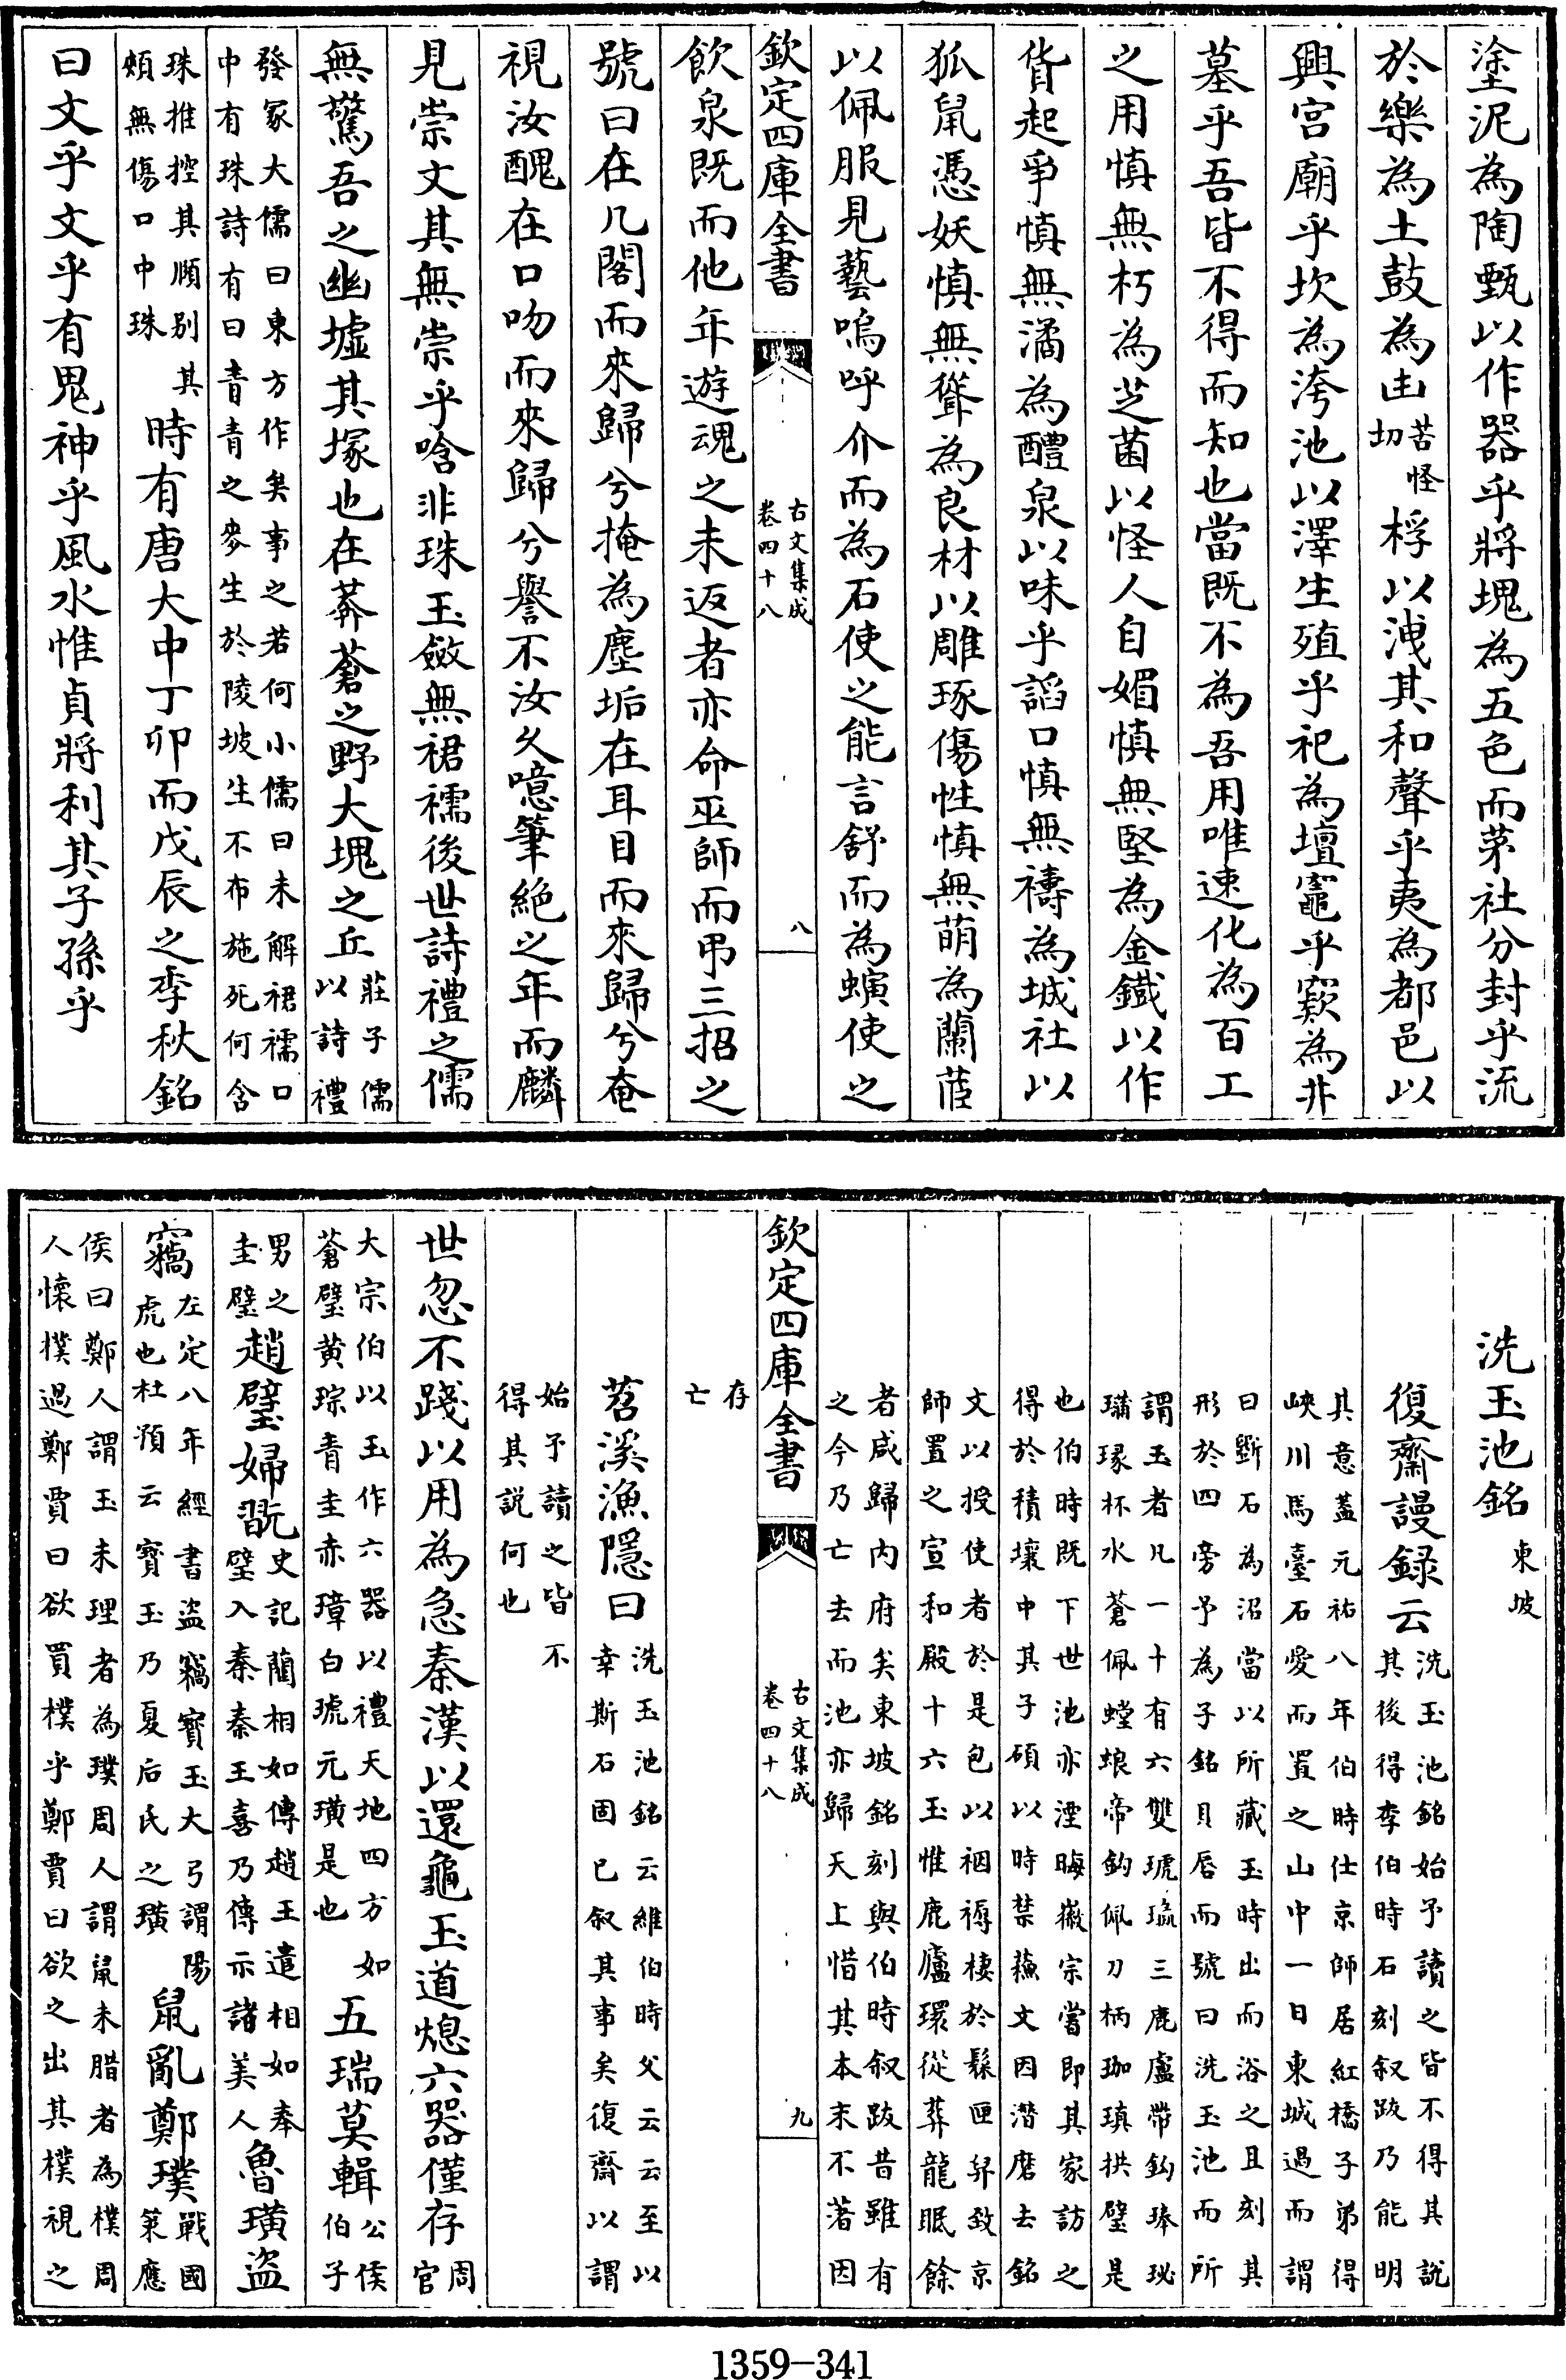 塗泥為陶甄以作器乎將塊為五色而茅社分封乎流
於樂為土鼓為凷苦怪切桴以洩其和聲乎夷為都邑以
興宮廟乎坎為洿池以澤生殖乎祀為壇竈乎竅為非
墓乎吾皆不得而知也當既不為吾用唯速化為百工
之用慎無朽為芝菌以怪人自媚慎無堅為金鐵以作
貨起爭慎無潏為醴泉以味乎謟口慎無禱為城社以
狐鼠憑妖慎無聳為良材以雕琢傷性慎無萌為蘭茝
以佩服見藝嗚呼介而為石使之能言舒而為螾使之
欽定四庫全書 古文集成 卷四十八 八
飲泉既而他年遊魂之未返者亦命巫師而弔三招之
號曰在几閣而來歸兮掩為塵垢在耳目而來歸兮奄
視汝醜在口吻而來歸兮譽不汝久噫筆絕之年而麟
見崇文其無崇乎唅非珠玉斂無裙襦後世詩禮之儒
無驚吾之幽墟其塚也在莽蒼之野大塊之丘莊子儒以詩禮
發冢大儒曰東方作矣事之若何小儒曰未解裙襦口
中有珠詩有曰青青之麥生於陵坡生不布施死何含
珠推控其順別其頰無傷口中珠時有唐大中丁卯而戊辰之季秋銘
曰文乎文乎有鬼神乎風水惟貞將利其子孫乎
洗玉池銘 東坡
復齋謾録云洗玉池銘始予讀之皆不得其說
其後得李伯時石刻叙跋乃能明
其意蓋元祐八年伯時仕京師居紅橋子弟得
峽川馬臺石愛而置之山中一日東城過而謂
曰斵石為沼當以所藏玉時出而浴之且刻其
形於四旁予為子銘貝唇而號曰洗玉池而所
謂玉者凡一十有六雙琥璏三鹿盧帶鈎琫珌
璊瑑杯水蒼佩螳蜋帝鈎佩刀柄珈瑱拱璧是
也伯時既下世池亦湮晦徽宗嘗即其家訪之
得於積壤中其子碩以時禁蘓文因潛磨去銘
文以授使者於是包以裀褥棲於髹匣舁致京
師置之宣和殿十六玉惟鹿廬環從葬龍眠餘
者咸歸内府矣東坡銘刻與伯時叙跋昔雖有
之今乃亡去而池亦歸天上惜其本末不著因
欽定四庫全書 古文集成 卷四十八 九
存
亡
苕溪漁隱曰洗玉池銘云維伯時父云云至以
幸斯石固已叙其事矣復齋以謂
始予讀之皆不
得其說何也
世忽不踐以用為急秦漢以還龜玉道熄六器僅存周官
大宗伯以玉作六器以禮天地四方如
蒼璧黄琮青圭赤璋白琥元璜是也五瑞莫輯公侯伯子
男之圭璧趙璧婦翫史記藺相如傳趙王遣相如奉
璧入秦秦王喜乃傳示諸美人魯璜盜
竊左定八年經書盜竊寶玉大弓謂陽
虎也杜預云寶玉乃夏后氏之璜鼠亂鄭璞戰國策應
侯曰鄭人謂玉未理者為璞周人謂鼠未腊者為樸周
人懷樸過鄭賈曰欲買樸乎鄭賈曰欲之出其樸視之
1359-341